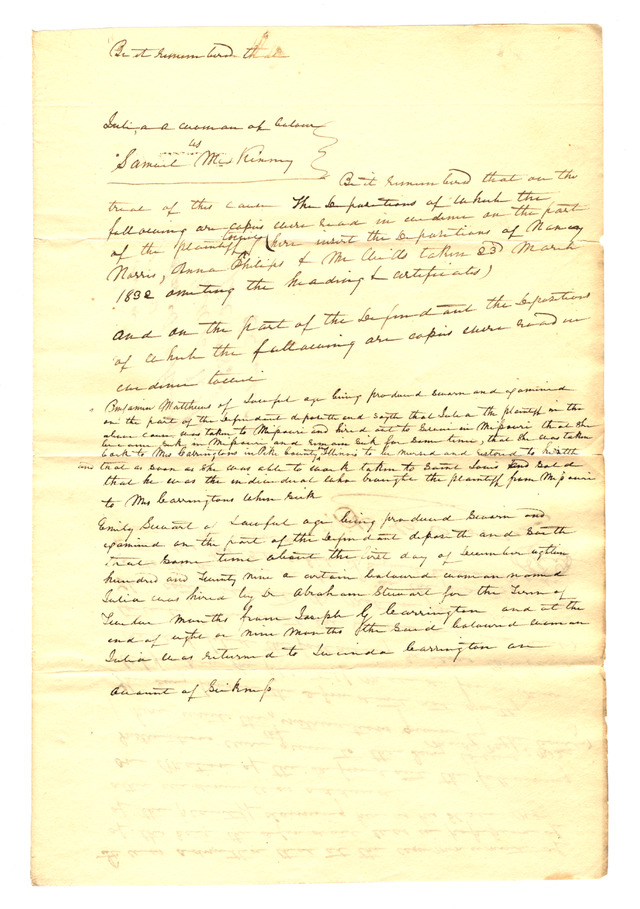 Be it remembered that
Julia a woman of Colour
vs
Samuel McKinney
Be it remembered that on the
trial of this cause The Depositions of which the
following are copies were read in evidence on the part
of the plaintiff towit (here insert the Depositions of Nancy
Norris, Anna Philips & taken 23d March
1832 omiting the heading & certificates)
And on the part of the Defendant the Depositions
of which the following are copies were read in
evidence towit
Benjamin Matthews of lawful age being produced sworn and examined
on the part of the Defendant deposeth and sayth that Julia the plaintiff in the
above cause was taken to Missouri and hired out to in Missouri that she
became sick in Missouri, and remain sick for some time, that she was taken
back to Mrs Carringtons in Pike County Illinois to be nursed and restord to health
and that as soon as she was able to work taken to Saint Louis and sold
that he was the individual who brought the plaintiff from Missouri
to Mrs Carringtons when sick
Emily Stewart of lawful age being produced sworn and
examined on the part of the Defendant deposeth and saith
that some time about the first day of December eighteen
hundred and twenty nine a certain coloured woman named
Julia was hired by Dr Abraham Stewart for the Term of
Twelve months from Joseph G Carrington and at the
end of eight or nine months the said Coloured woman
Julia was returned to Lucinda Carrington on
account of Sickness